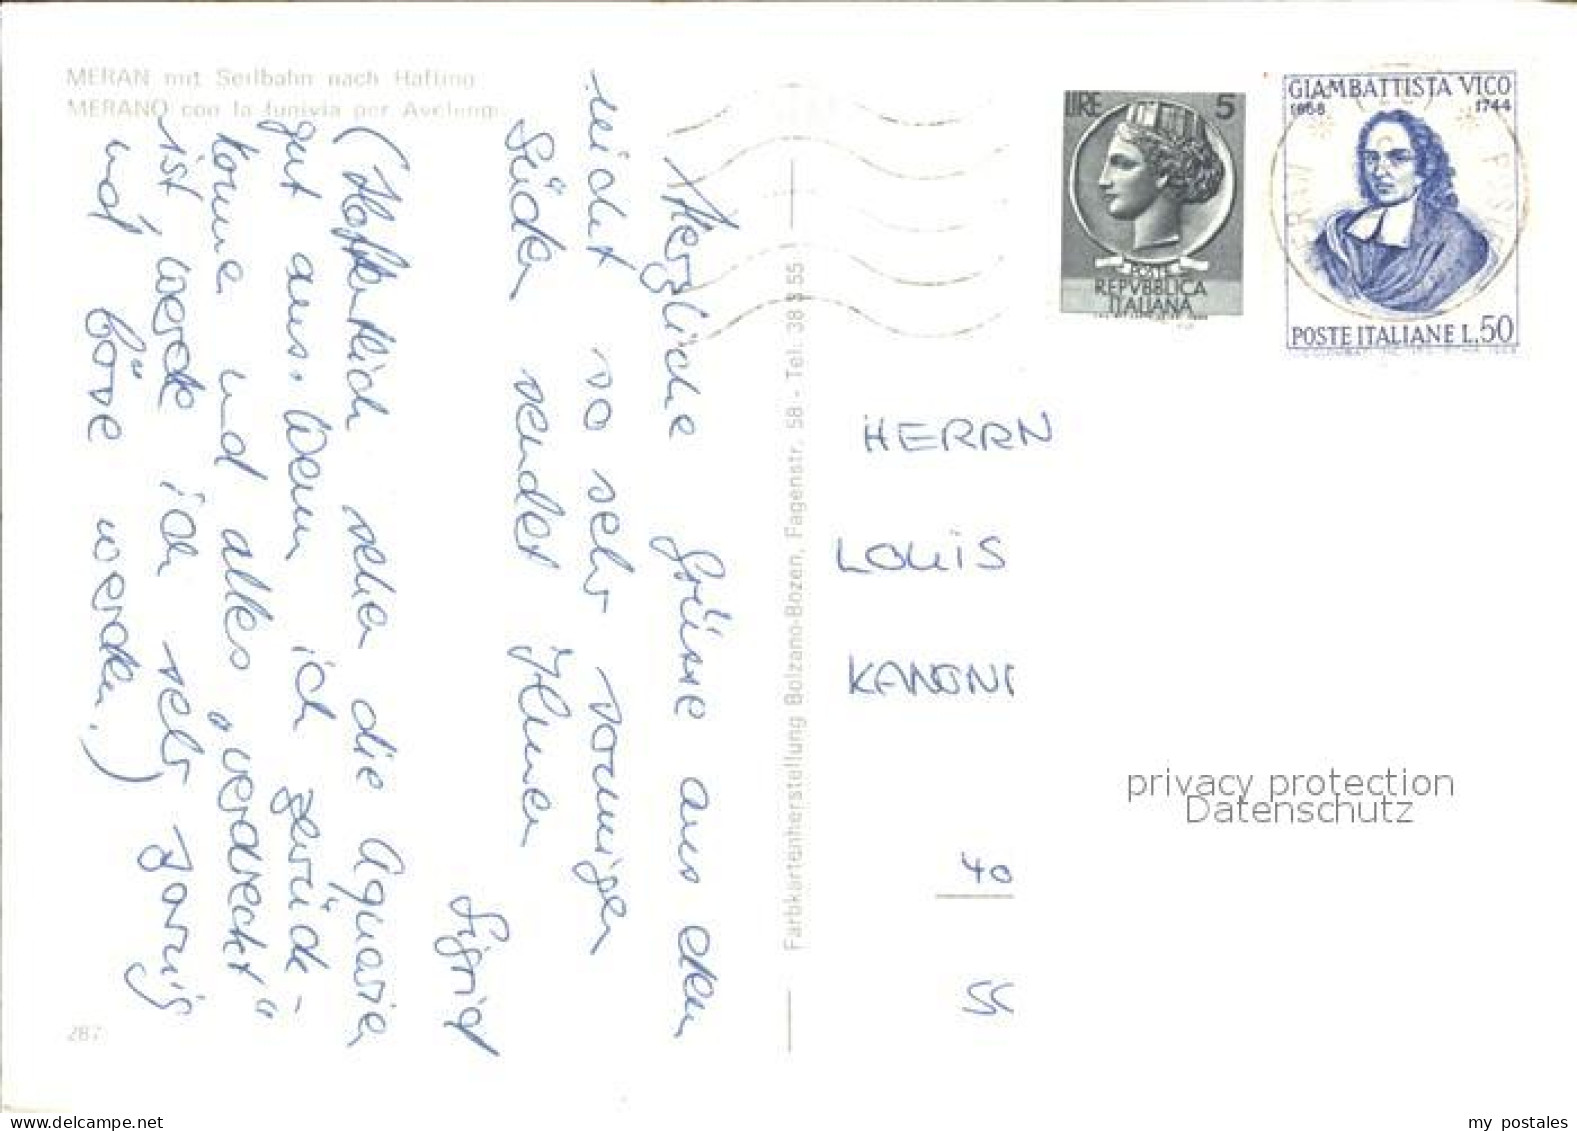 MERAN mit Seilbahn nach Hafling
MERANO con la funivia per Avelengo
Herzliche Grüsse aus dem
nicht so sehr sonnigen
Süden sendet Ihnen
Sigrid
(Hoffentlich sehen die Aquarien
gut aus. Wenn ich zurück-
komme und alles „verdreckt“
ist, werde ich sehr zornig
und böse werden.)
287
Farbkartenherstellung Bolzano-Bozen, Fagenstr. 58 - Tel. 38 3 55
LIRE 5
POSTE
REPVBBLICA
ITALIANA
GIAMBATTISTA VICO
1668 1744
POSTE ITALIANE L.50
HERRN
LOUIS
KANONI
privacy protection
Datenschutz
40
55
my postales